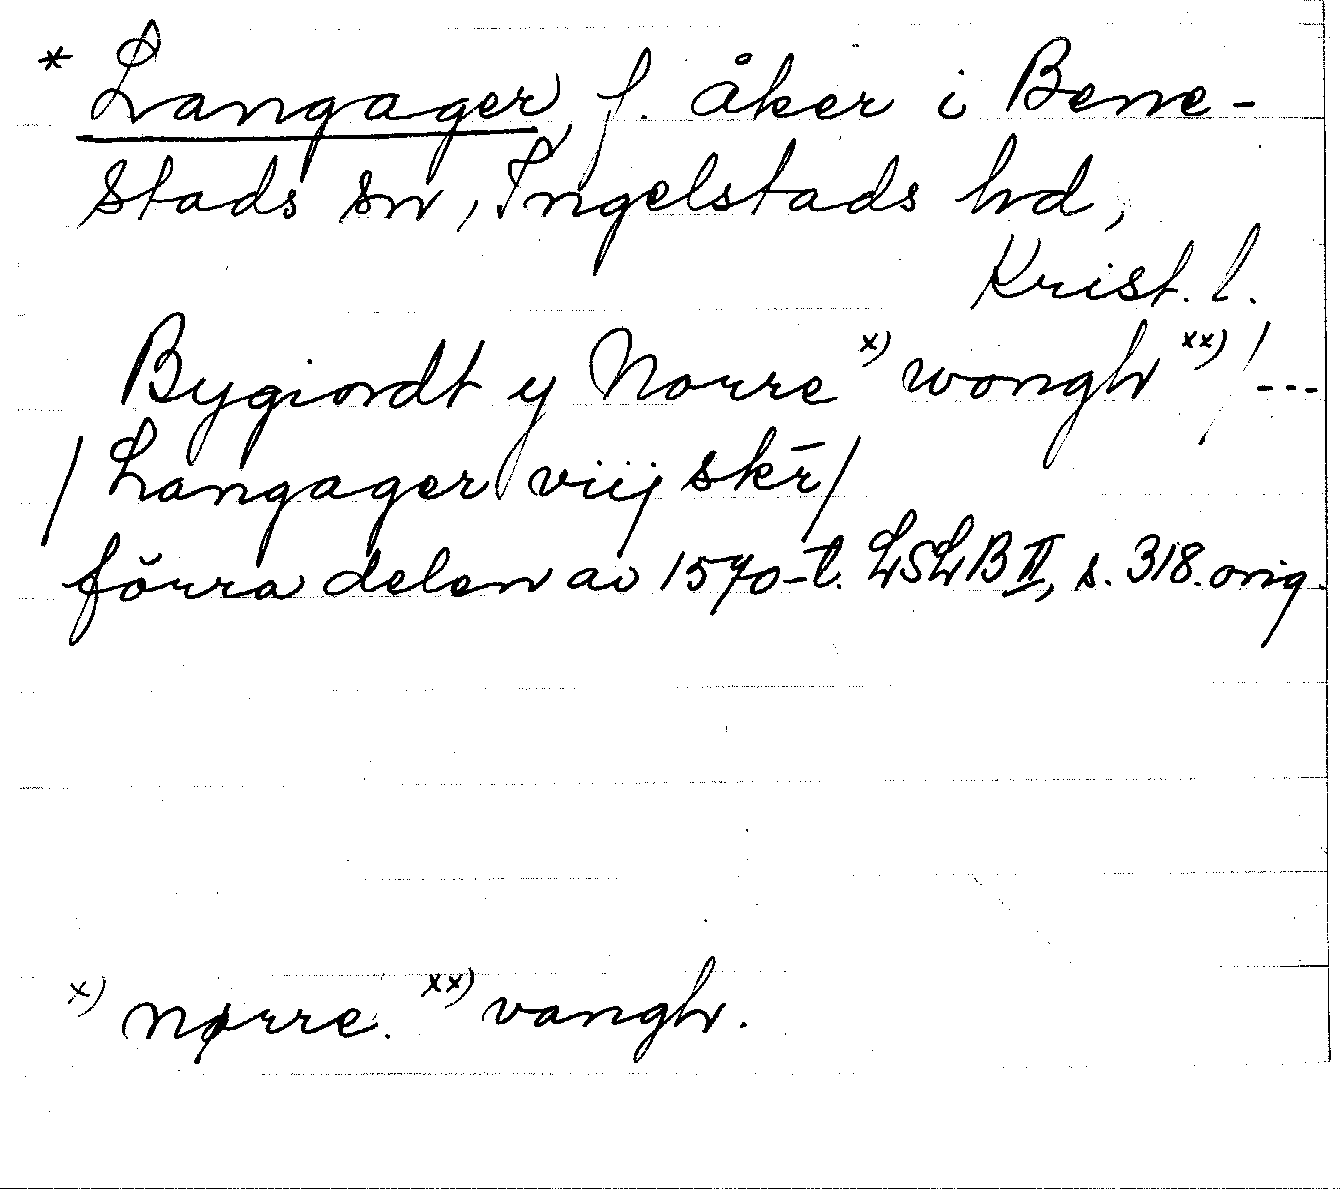 * Langager, f. åker i Bene-
stads sn, Ingelstads hd,
Krist. l.
Bygiordt y Norre x) wongh xx) / ---
/ Langager viij skr̄ /
förra delen av 1570-t. LSLB II, s. 318. orig.
x) nørre. xx) vangh.